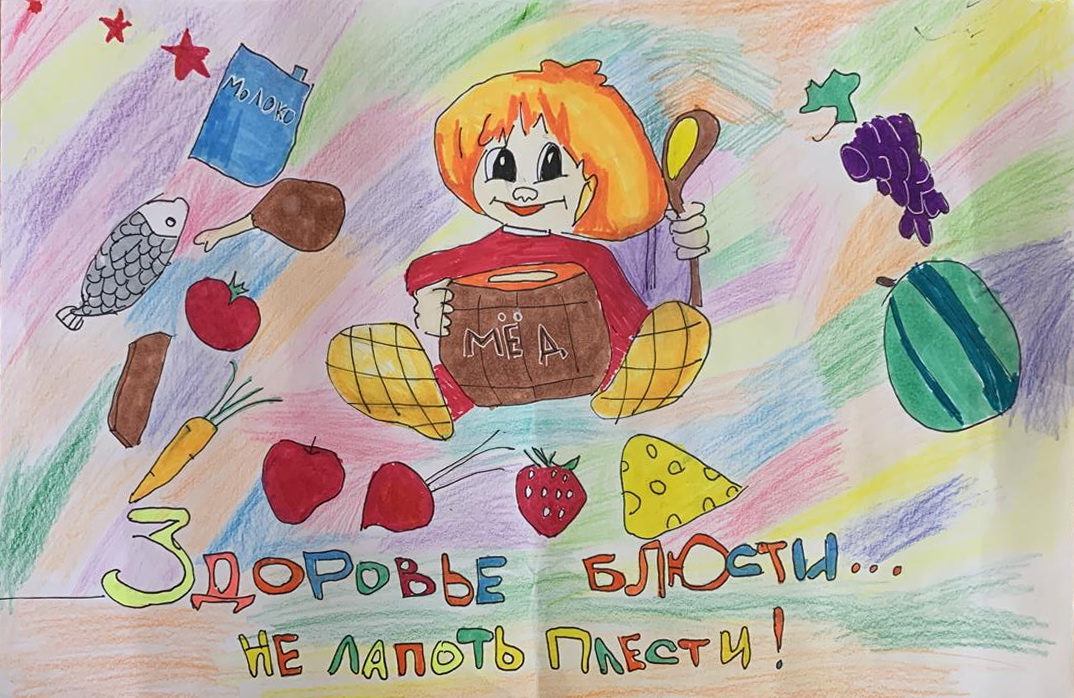 МОЛОКО
МЁД
ЗДОРОВЬЕ БЛЮСТИ...
НЕ ЛАПОТЬ ПЛЕСТИ!